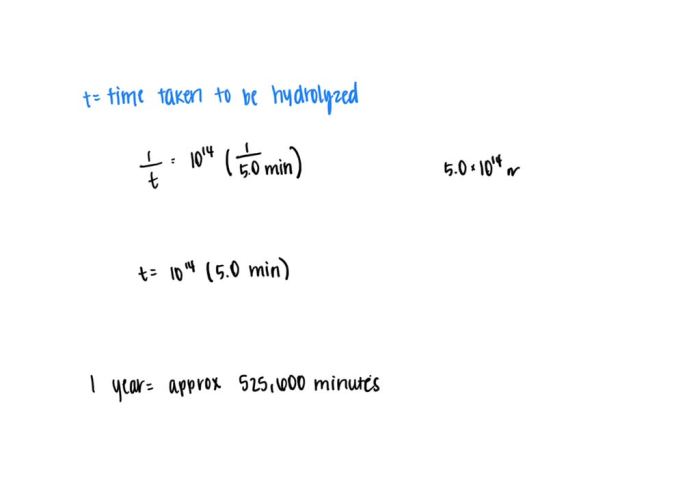 t= time taken to be hydrolyzed
1/t = 10¹⁴ (1/5.0 min)
5.0 × 10¹⁴
t= 10¹⁴ (5.0 min)
1 year= approx 525,600 minutes